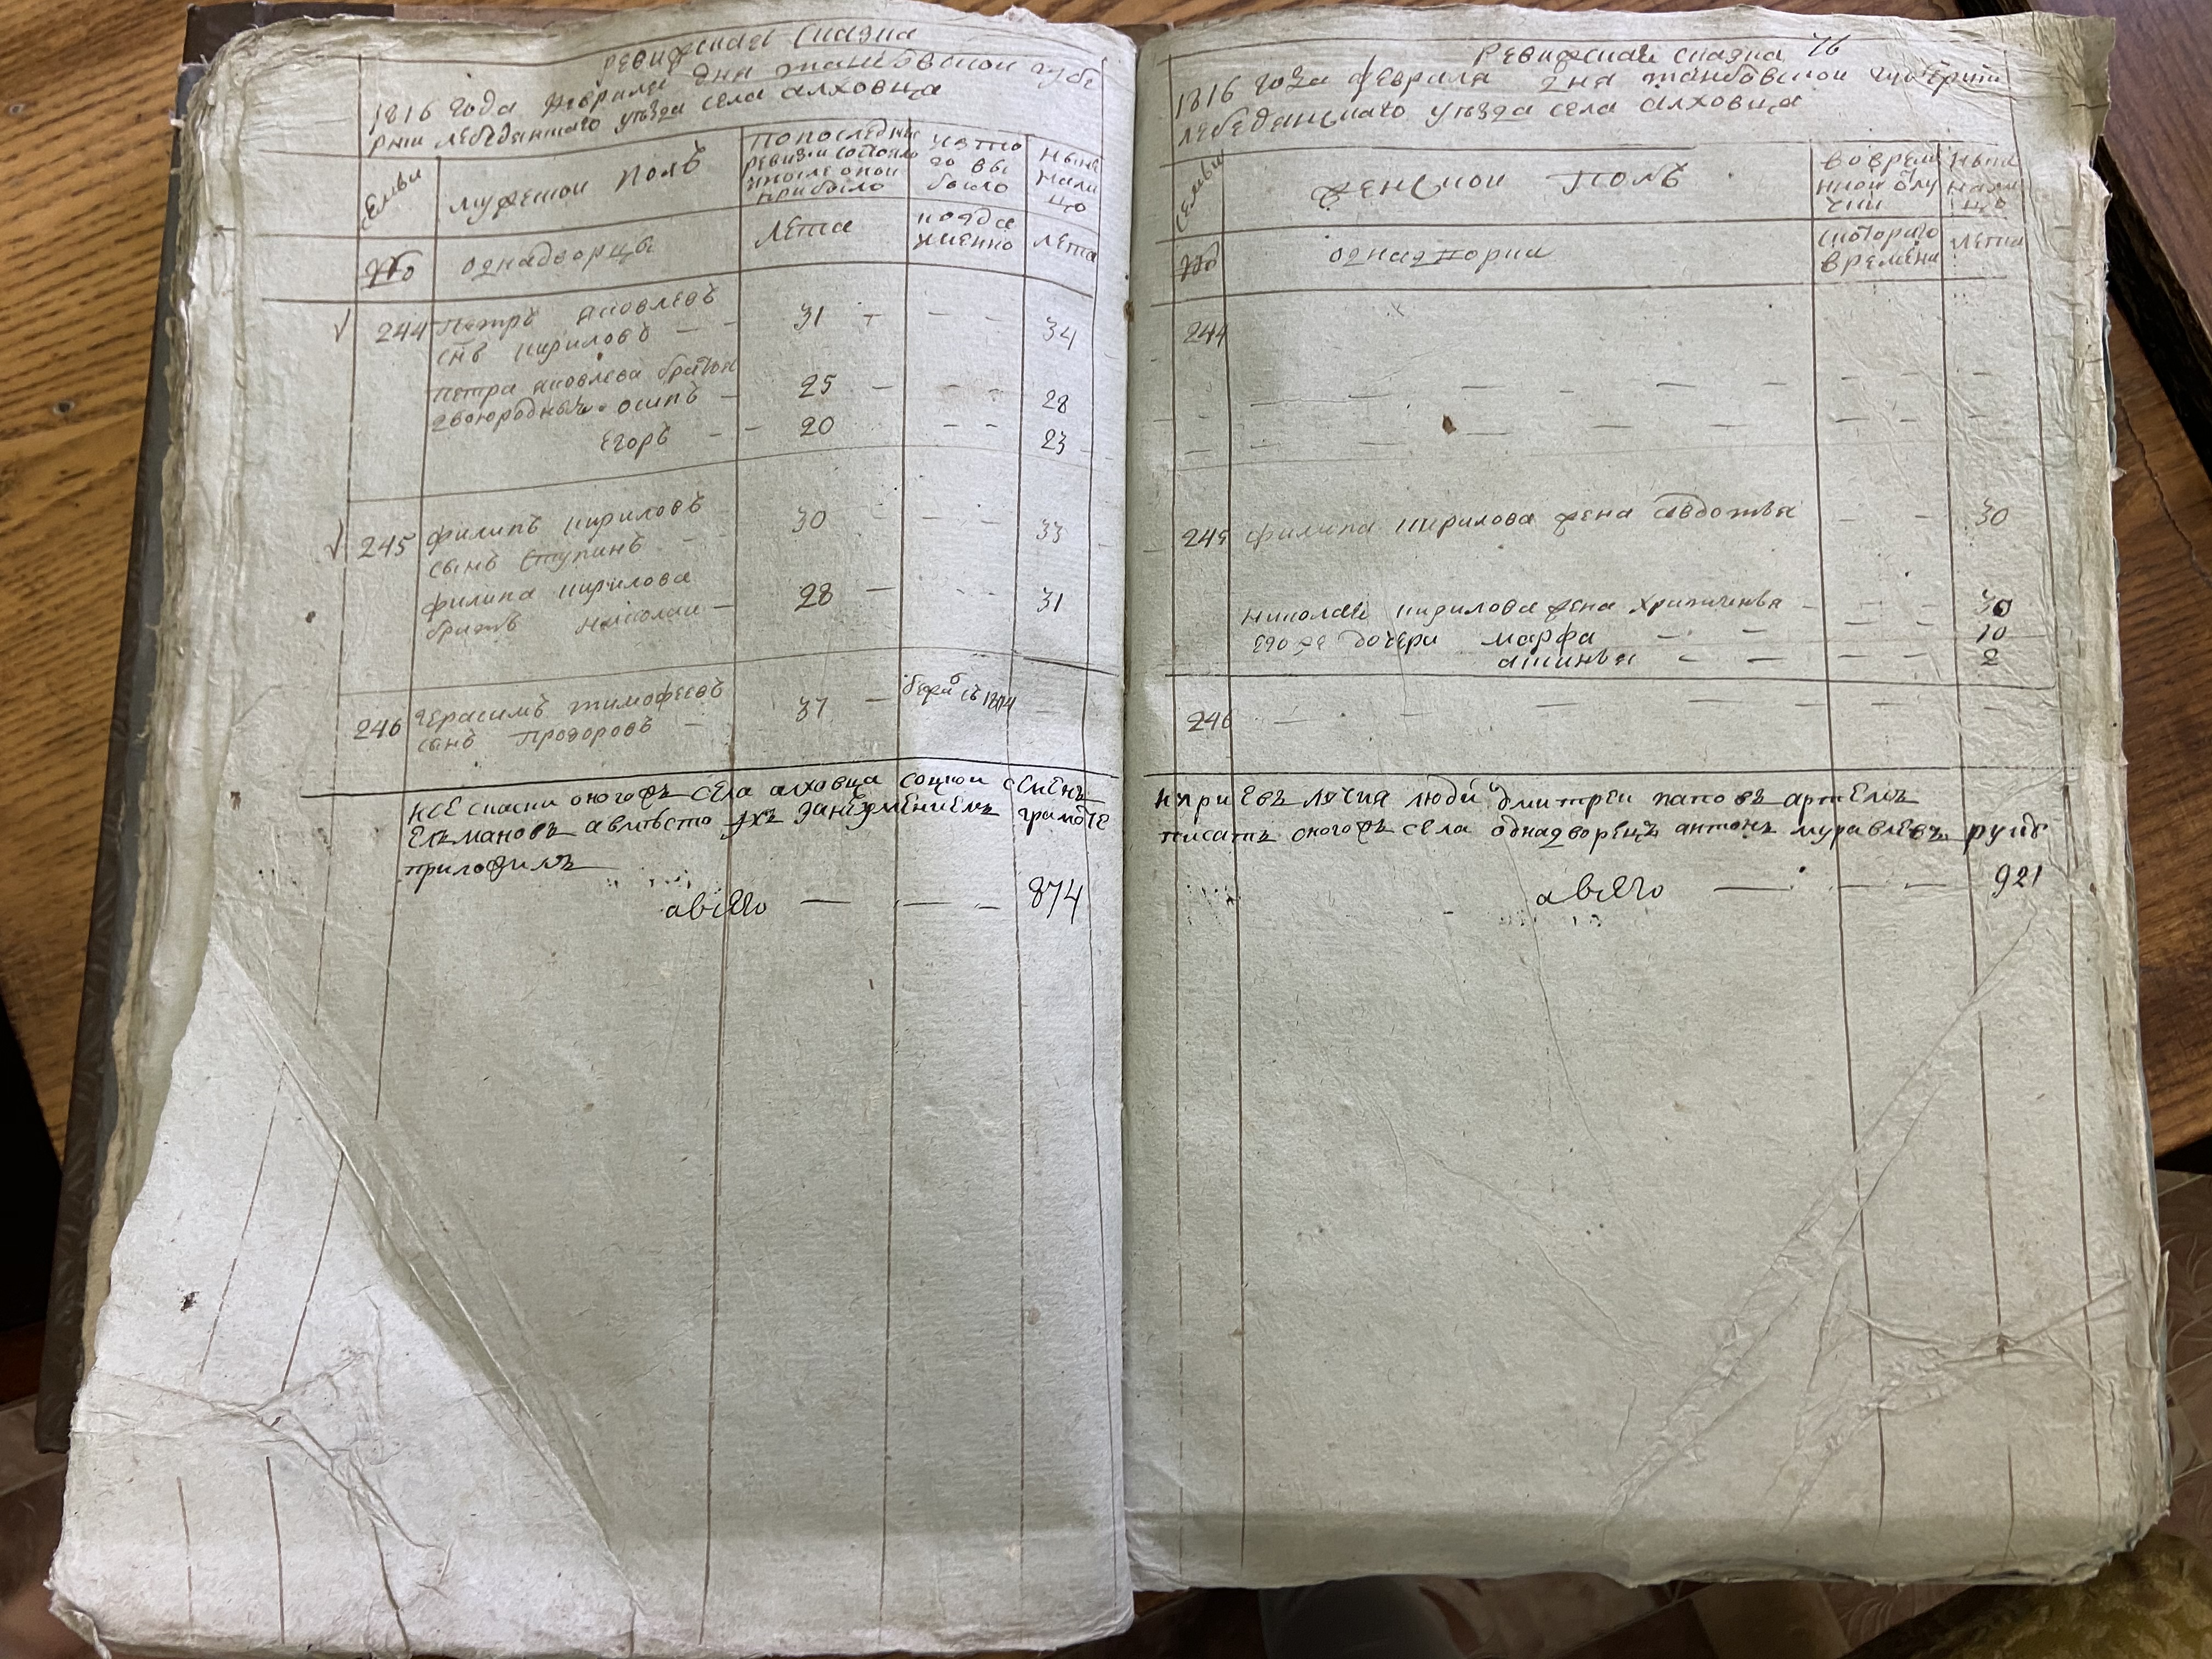 ревижская сказка
1816 года февраля дня танбовской губе
рнии лебеданскаго уезда села алховца
Семьи
мужескои полъ
попоследнеи
ревизии состояло
ипосле онои
прибыло
изто
го вы
было
ныне
нали
цо
№
однадворцы
лета
когда
имянно
лета
244 Петръ яковлевъ
снъ кириловъ — — 31 — — — 34
петра яковлева братья
двоюродныя осипъ — 25 — — — 28
Егоръ — — 20 — — 23
245 филипъ кириловъ 30 — — 33
сынъ Ступинъ — —
филипа кирилова 28 — — — 31
братъ николаи —
246 герасимъ тимофеевъ 37 — бежалъ съ 1814 —
сынъ Прозоровъ —
оногожъ села алховца соцкои семенъ
Елмановъ авместо ихъ занеумениемъ грамоте
приложилъ
авсего — — — 874
ревижская сказка 76
1816 года февраля дня танбовской губернии
лебеданскаго уезда села алховца
Семьи
женскои полъ
вовремя
ннои отлу
чки
ныне
нали
цо
№
однадворки
скотораго
времяни
лета
244
— — — — — —
— — — — — — —
245 филипа кирилова жена авдотья — — 30
николая кирилова жена — — — 30
егоже дочери марфа — — — — 10
— — — — 2
246 — — — — — —
люди дмитреи паповъ артемъ
писатъ оногожъ села однадворецъ антонъ муравлевъ руку
авсего — — — 921